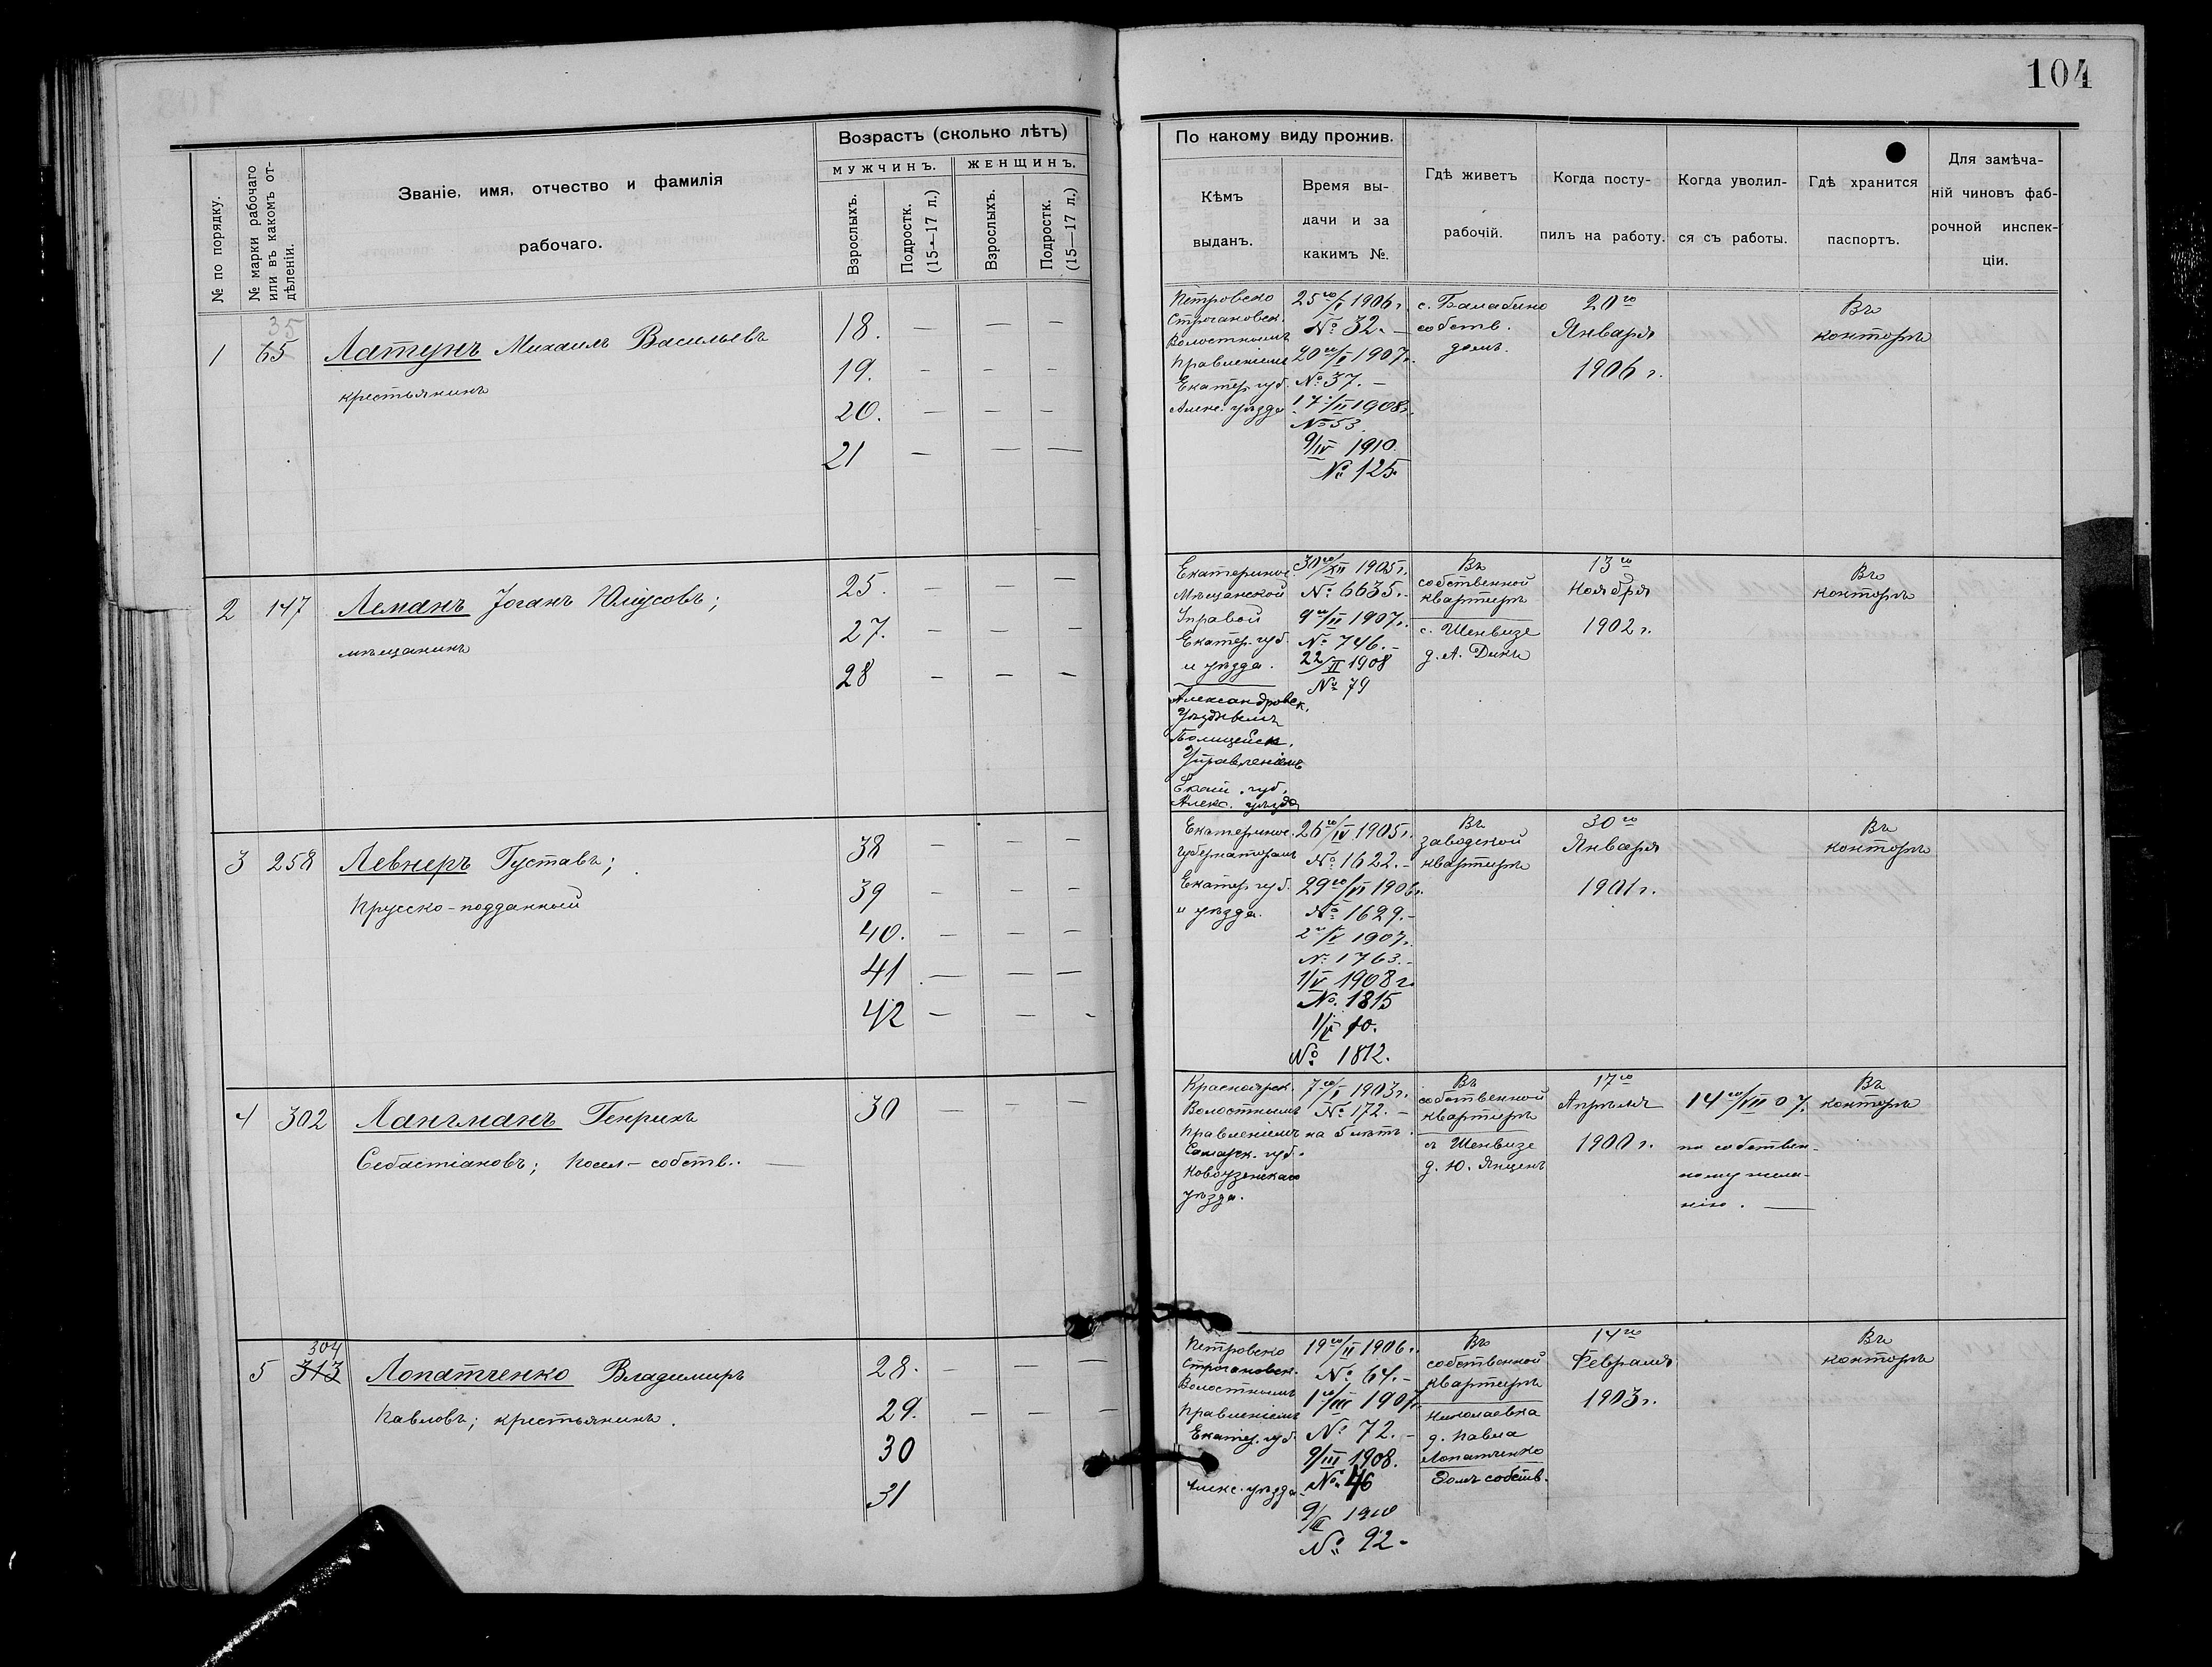 104
№ по порядку.
№ марки рабочаго
или въ какомъ от-
дѣленіи.
Званіе, имя, отчество и фамилія
рабочаго.
Возрастъ (сколько лѣтъ)
мужчинъ.
женщинъ.
Взрослыхъ.
Подростк.
(15-17 л.)
Взрослыхъ.
Подростк.
(15—17 л.)
По какому виду прожив.
Кѣмъ
выданъ.
Время вы-
дачи и за
какимъ №.
Гдѣ живетъ
рабочій.
Когда посту-
пилъ на работу.
Когда уволил-
ся съ работы.
Гдѣ хранится
паспортъ.
Для замѣча-
ній чиновъ фаб-
рочной инспек-
ціи.
35
1 65 Латунъ Михаилъ Васильевъ
крестьянинъ
18. — — —
19. — — —
20. — — —
21 — — —
Петровско
Строгановск.
Волостнымъ
Правленіемъ
Екатер. губ.
Алекс. уѣзда
25го/I 1906 г.
№ 32. —
20го/I 1907 г.
№ 37. —
17/II 1908 г.
№ 53
9/IV 1910.
№ 125.
с. Балабино
собств.
домъ.
20го
Января
1906 г.
Въ
конторѣ
2 147 Леманъ Јоганъ Юліусовъ;
мѣщанинъ
25. — — —
27. — — —
28 — — —
Екатеринос.
Мѣщанской
Управой
Екатер. губ.
и уѣзда.
Александровск.
Уѣзднымъ
Полицейск.
Управленіемъ
Екат. губ.
Алекс. уѣзда
30го/XII 1905 г.
№ 6635. —
9го/II 1907 г.
№ 746. —
22/II 1908
№ 79
Въ
собственной
квартирѣ
с. Шенвизе
д. А. Дикъ
13го
Ноября
1902 г.
Въ
конторѣ
3 258 Левнеръ Густавъ;
Прусско-подданный
38 — — —
39 — — —
40. — — —
41 — — —
42 — — -
Екатеринос.
Губернаторомъ
Екатер. губ.
и уѣзда.
26го/IV 1905 г.
№ 1622. —
29го/VI 1906 г.
№ 1629. —
2го/V 1907 г.
№ 1763. —
1/V 1908 г.
№ 1815
1/V 10.
№ 1812.
Въ
заводской
квартирѣ
30го
Января
1901 г.
Въ
конторѣ
4 302 Лангманъ Генрихъ
Себастіановъ; Посел-собств.. —
30 — — —
Красноярск.
Волостнымъ
Правленіемъ
Самарск. губ.
Новоузенскаго
уѣзда.
7го/I 1903 г.
№ 172. —
на 5 лѣтъ.
Въ
собственной
квартирѣ
с. Шенвизе
д. Ю. Янценъ
17го
Апрѣля
1900 г.
14го/VII 07.
по собствен-
ному жела-
нію. —
Въ
конторѣ
304
5 313 Лопатченко Владимиръ
Павловъ; крестьянинъ.
28. — — —
29. — — —
30
31
Петровско
Строгановск.
Волостнымъ
Правленіемъ
Екатер. губ.
Алекс. уѣзда
19го/II 1906 г.
№ 64. —
1го/III 1907 г.
№ 72. —
9/III 1908.
№ 46
9/III 1910
№ 92.
Въ
собственной
квартирѣ
Николаевка
д. Павла
Лопатченко
Домъ собств.
14го
Февраля
1903 г.
Въ
конторѣ